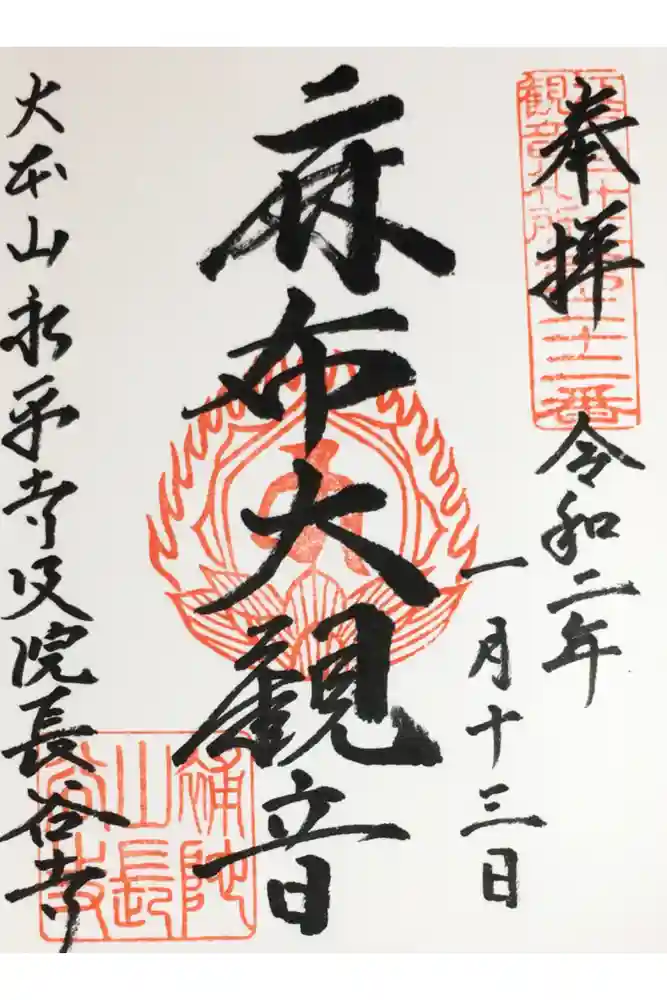 奉拝
令和二年
一月十三日
麻布大観音
大本山永平寺別院長谷寺
江戸三十三観音札所第二十二番
補陀山長谷寺